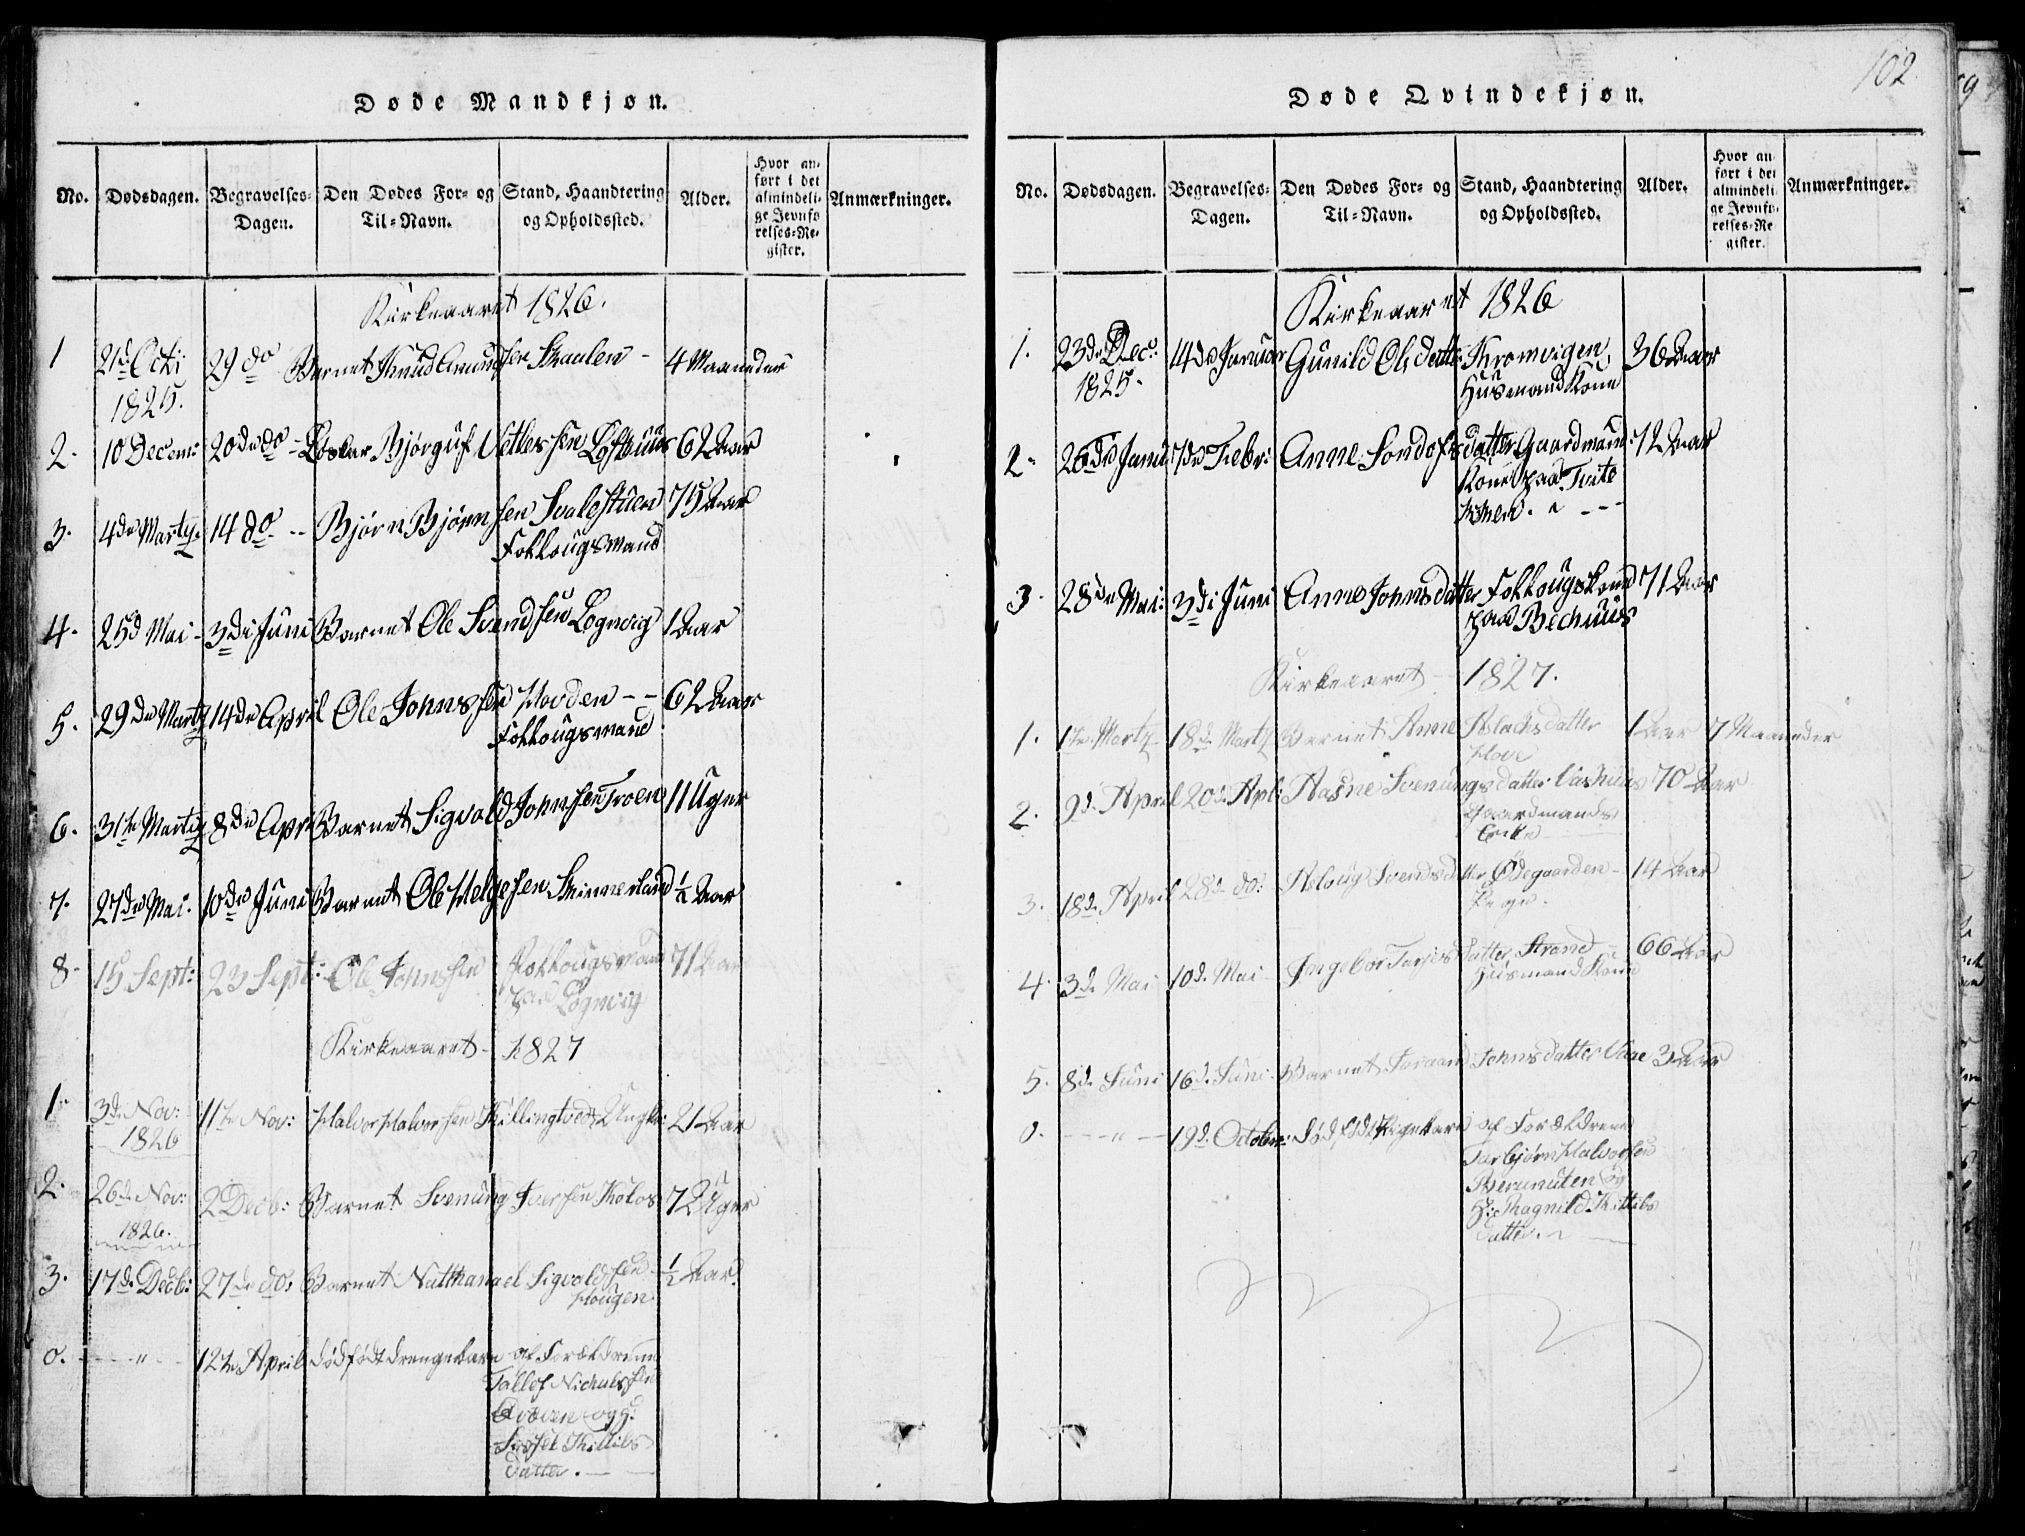 Døde Mandkjøn.
No. Dødsdagen. Begravelses-Dagen. Den Dødes For- og Til-Navn. Stand, Haandtering og Opholdssted. Alder. Hvor anført i det almindelige Jevnførelses-Register. Anmærkninger.
Kirkeaaret 1826.
1 21d Octr: 29 do Barnet Knud Amundsen Skaalen - 4 Maaneder
1825.
2. 10 Decem: 20de do - Vetlessen Lofthuus 62 Aar
3. 4de Martz. 14 do -- Bjørn Bjørnsen Svalestuen 75 Aar
Follougsmand
4. 25d Mai - 3di Juni Barnet Ole Svendsen Lognvig 1 Aar
5. 29de Martz 14de April Ole Johnssen Hovden -- 62 Aar
Follougsmand
6. 31te Martz 8de Apr Barnet Sigvald Johnsen Troen 11 Uger
7. 27de Mai. 10de Juni Barnet Ole Helgesen Skinnerland ½ Aar
8. 15 Sept: 23 Sept: Ole Johnssen Follougsmand 71 Aar
paa Lognvig
Kirkeaaret - 1827
1. 3de Nov: 11te Nov: Halvor Halvorsen Killingtvedt Ungkr: 21 Aar
1826
2. 26de Nov: 2 Decb: Barnet Svenung Iversen Kolos 7 Uger
1826.
3. 17de Decb: 27de do: Barnet Natthanael Sigvaldsen ½ Aar.
Hougen
0. - - " - - 12te April dødfødt drengebarn af Forældrene
Tallef Nichulssen
og H:
Sissel Kittils
datter. -
102
Døde Qvindekjøn.
No. Dødsdagen. Begravelses-Dagen. Den Dødes For- og Til-Navn. Stand, Haandtering og Opholdssted. Alder. Hvor anført i det almindelige Jevnførelses-Register. Anmærkninger.
Kirkeaaret 1826
1. 23de Dec: 14de Januar Gunild Ols datter Kromvigen, 36 Aar
1825. Husmand Kone
2. 26de Janu: 7de Febr: Anne Sondofsdatter Gaardmand 72 Aar
Kone paa Tveito
3. 28de Mai: 3di Juni Anne Johnsdatter Follougskone 71 Aar
paa Bechuus
Kirkeaaret - 1827.
1. 1te Martz 18de Martz Barnet Anne Aslachsdatter 1 Aar 7 Maaneder
Hove
2. 9d. April 20de Apl: Aasne Svenungsdatter Vashuus 70 Aar
Gaardmands
Enke
3. 18d. April 28d. do: Asloug Svendsdatter Ødegaarden - 14 Aar
Pige.
4. 3d. Mai 10d. Mai - Ingebor Tarjesdatter Strand - 66 Aar
Husmand Kone
5. 8d. Juni 16d. Juni - Barnet Johnsdatter Vaae 3 Aar
0. - - " - 19d. October: dødfødt Pigebarn af Forældrene
Tarbjørn Halvorsen
og
H: Ragnild Kittils
datter. -